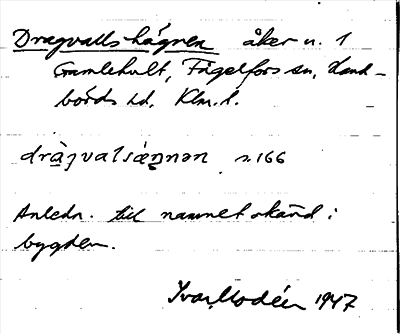 Dragvallshägnen åker n. 1
Gamlehult, Fågelfors sn, Hand-
börds hd, Klm. l.
dràgvalsæ̀nnən s. 166
Anledn. till namnet okänd i
bygden.
Ivar Modéer 1947